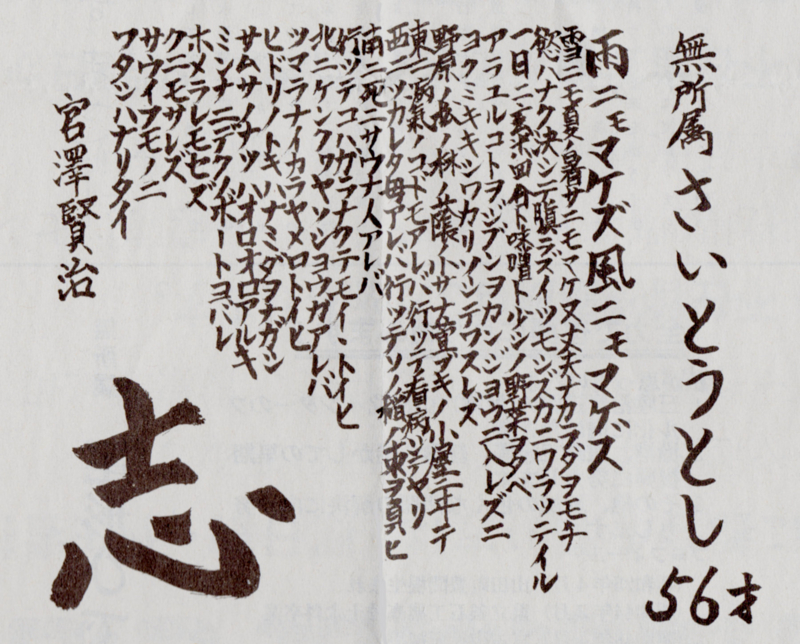 無所属 さいとうとし 56才
雨ニモマケズ風ニモマケズ
雪ニモ夏ノ暑サニモマケヌ丈夫ナカラダヲモチ
慾ハナク決シテ瞋ラズイツモシズカニワラッテイル
一日ニ玄米四合ト味噌ト少シノ野菜ヲタベ
アラユルコトヲジブンヲカンジョウニ入レズニ
ヨクミキキシワカリソシテワスレズ
野原ノ松ノ林ノ蔭ノ小サナ萱ブキノ小屋ニ在テ
東ニ病氣ノコドモアレバ行ッテ看病シテヤリ
西ニツカレタ母アレバ行ッテソノ稲ノ束ヲ負ヒ
南ニ死ニサウナ人アレバ
行ッテコハガラナクテモイヽトイヒ
北ニケンクヮヤソショウガアレバ
ツマラナイカラヤメロトイヒ
ヒドリノトキハナミダヲナガシ
サムサノナツハオロオロアルキ
ミンナニデクノボートヨバレ
ホメラレモセズ
クニモサレズ
サウイフモノニ
ワタシハナリタイ
宮澤賢治
志